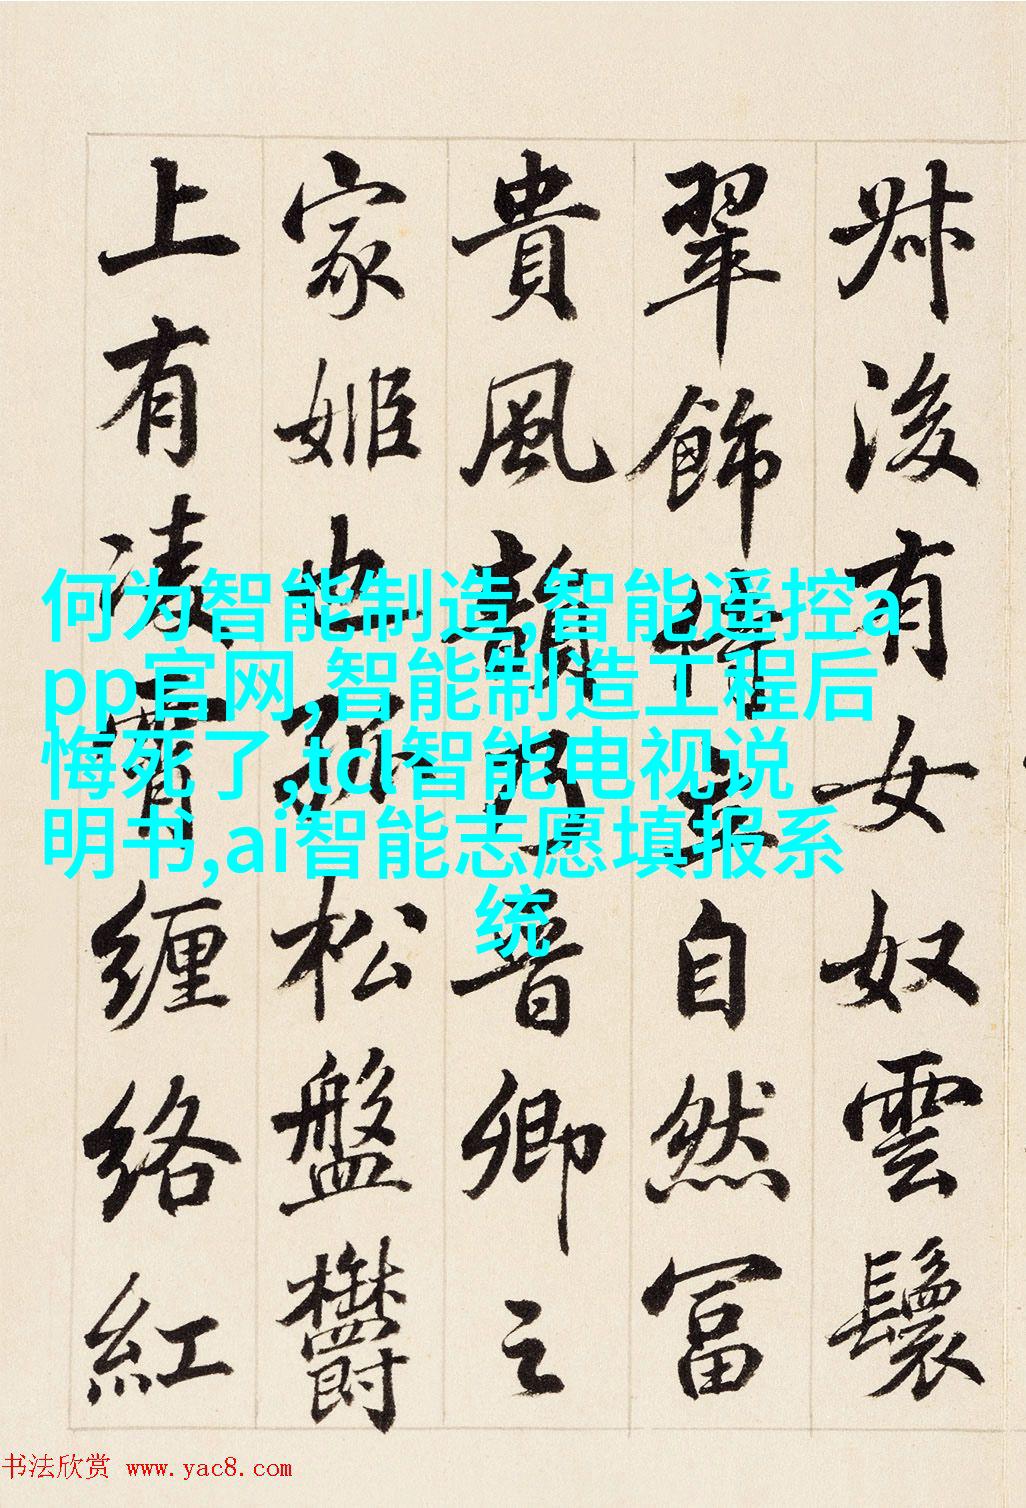 叔後有女奴雲鬟
翠飾侍立自然冨
貴風韻乃晋卿之
家姬也孤松盤欝
上有凌霄纏絡紅
何为智能制造,智能遥控a
pp官网,智能制造工程后
悔死了,tcl智能电视说
明书,ai智能志愿填报系
统
书法欣赏 www.yac8.com